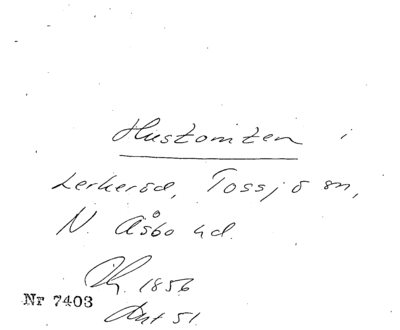 Hustomten i
Lerkeröd, Tossjö sn,
N. Åsbo hd.
1856
Nr 7403
51.